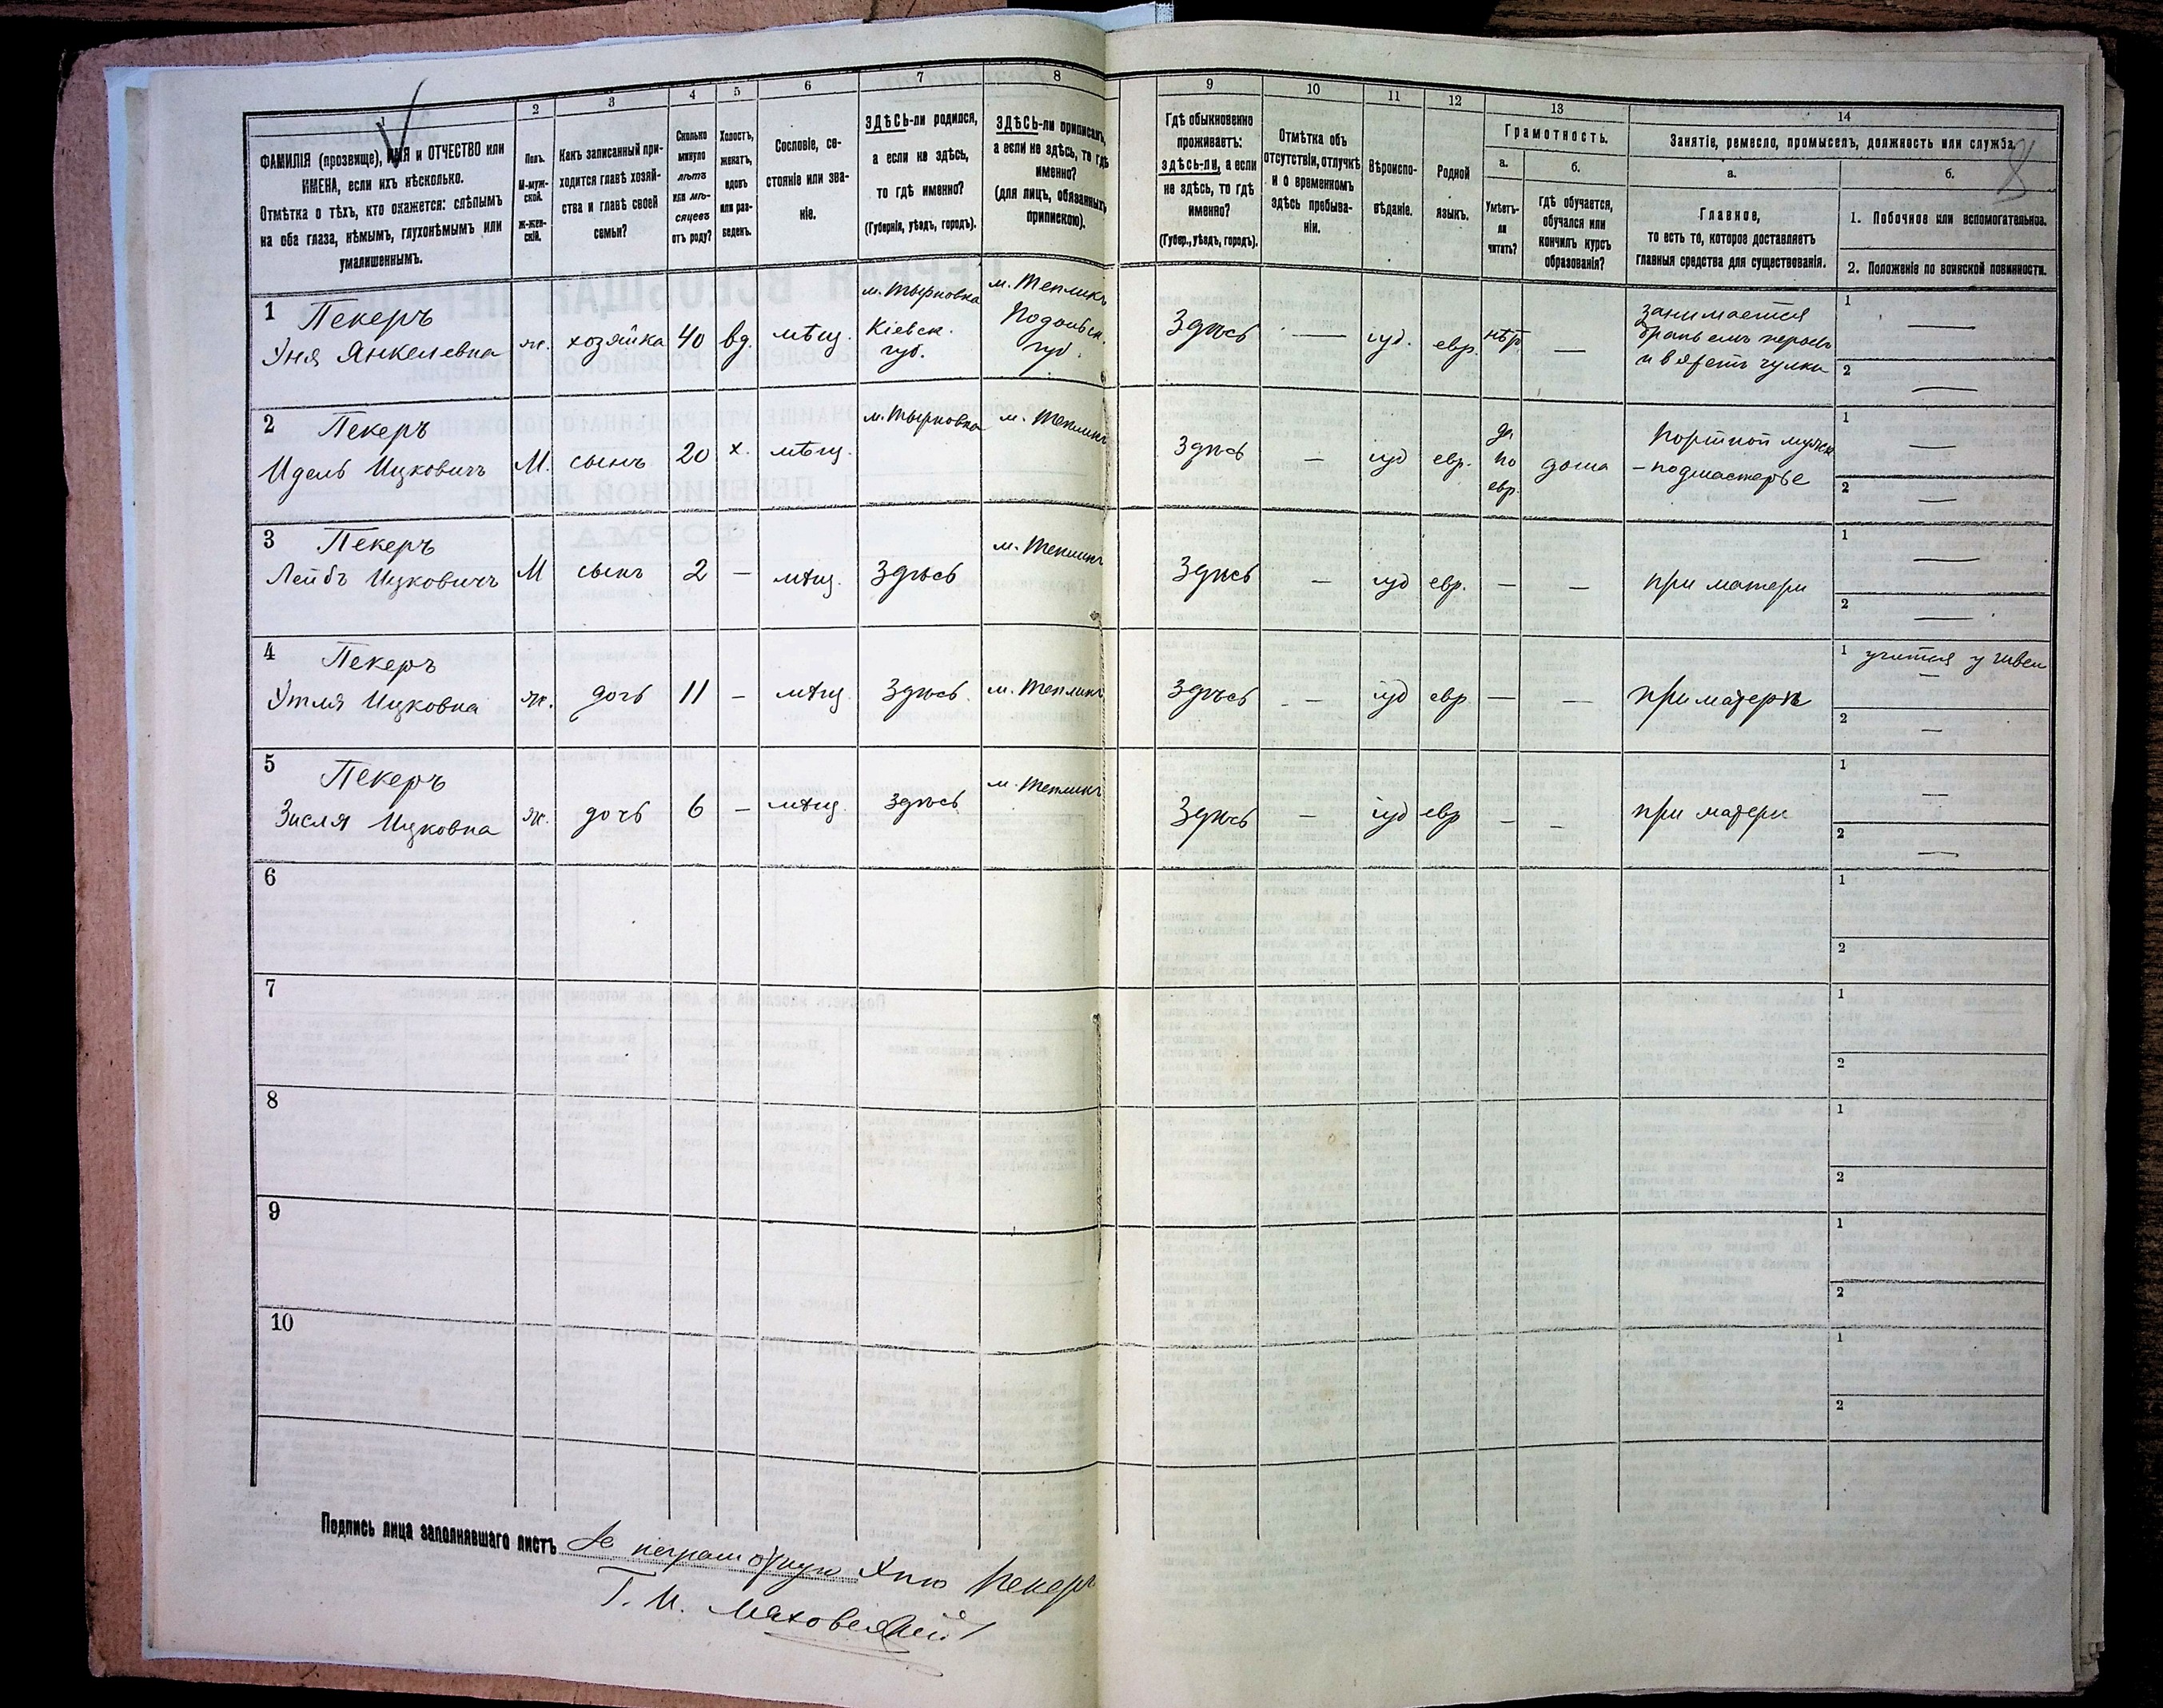 1
ФАМИЛІЯ (прозвище), ИМЯ и ОТЧЕСТВО или
ИМЕНА, если ихъ нѣсколько.
Отмѣтка о тѣхъ, кто окажется: слѣпымъ
на оба глаза, нѣмымъ, глухонѣмымъ или
умалишеннымъ.
2
Полъ.
М-муж-
ской.
Ж-жен-
скій.
3
Какъ записанный при-
ходится главѣ хозяй-
ства и главѣ своей
семьи?
4
Сколько
минуло
лѣтъ
или мѣ-
сяцевъ
отъ роду?
5
Холостъ,
женатъ,
вдовъ
или раз-
веденъ.
6
Сословіе, со-
стояніе или зва-
ніе.
7
ЗДѢСЬ-ли родился,
а если не здѣсь,
то гдѣ именно?
(Губернія, уѣздъ, городъ).
8
ЗДѢСЬ-ли приписанъ,
а если не здѣсь, то гдѣ
именно?
(для лицъ, обязанныхъ
припискою).
9
Гдѣ обыкновенно
проживаетъ:
ЗДѢСЬ-ли, а если
не здѣсь, то гдѣ
именно?
(Губер., уѣздъ, городъ).
10
Отмѣтка объ
отсутствіи, отлучкѣ
и о временномъ
здѣсь пребыва-
ніи.
11
Вѣроиспо-
вѣданіе.
12
Родной
языкъ.
13
Грамотность.
а.
Умѣетъ-
ли
читать?
б.
гдѣ обучается,
обучался или
кончилъ курсъ
образованія?
14
Занятіе, ремесло, промыселъ, должность или служба.
8
а.
Главное,
то есть то, которое доставляетъ
главныя средства для существованія.
б.
1. Побочное или вспомогательное.
2. Положеніе по воинской повинности.
1 Пекеръ
Янкелевна
ж. хозяйка 40 вд. мѣщ.
м. Тырновка
Кіевск.
губ.
м. Тепликъ
Подольск.
губ.
Здѣсь — іуд. евр. нѣтъ —
занимается
и вяжетъ чулки
1 —
2 —
2 Пекеръ
Идель Ицковичъ М. сынъ 20 х. мѣщ. м. Тырновка м. Тепликъ
Здѣсь — іуд евр.
да
по
евр.
дома
Портной
- подмастерье
1 —
2 —
3 Пекеръ
Лейбъ Ицковичъ М сынъ 2 — мѣщ. Здѣсь м. Тепликъ
Здѣсь — іуд евр. — — при матери
1 —
2 —
4 Пекеръ
Ицковна ж. дочь 11 — мѣщ. Здѣсь м. Тепликъ
Здѣсь — іуд евр — — при матери
1 учится у швеи
2 —
5 Пекеръ
Зисля Ицковна ж. дочь 6 — мѣщ. Здѣсь м. Тепликъ
Здѣсь — іуд евр — — при матери
1 —
2 —
6
1
2
7
1
2
8
1
2
9
1
2
10
1
2
Подпись лица заполнявшаго листъ За неграмотную Пекеръ